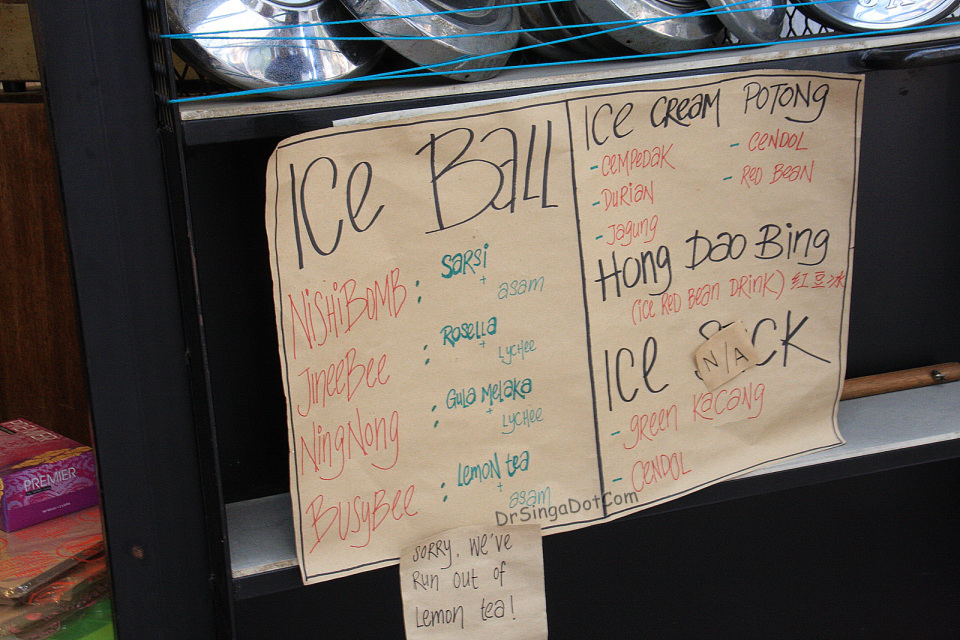 ICe Ball
NiSHiBOMB : Sarsi
+
asam
JineeBee : Rosella
+
LYCHee
NingNong : Gula Melaka
+
LYCHee
BusyBee : Lemon tea
+
asam
ICe CReaM POTONg
- CeMPeDaK
- DuRiaN
- Jagung
- CeNDOL
- ReD BeaN
Hong Dao Bing
(ice ReD Bean DRinK) 红豆冰
ICe N/A CK
- green Kacang
- CeNDOL
DrSingaDotCom
SORRY, We've
Run out of
Lemon tea!
PREMIER